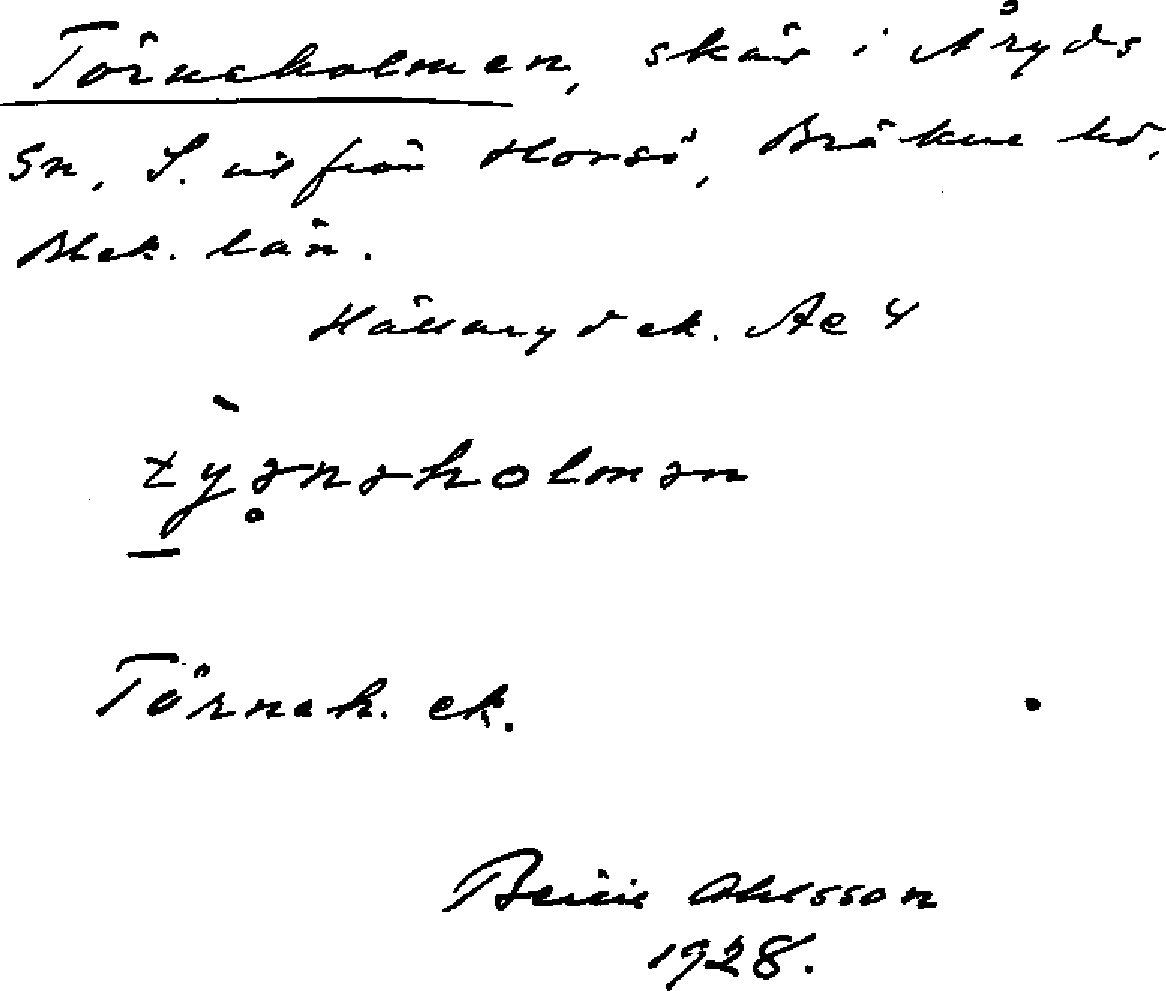 Törneholmen, skär i Åryds
Sn, S. ut från Horsö, Bräkne hd,
Blek. län.
Hällaryd ek. Ae 4
tỳənəholmən
Törneh. ek.
Ohlsson
1928.